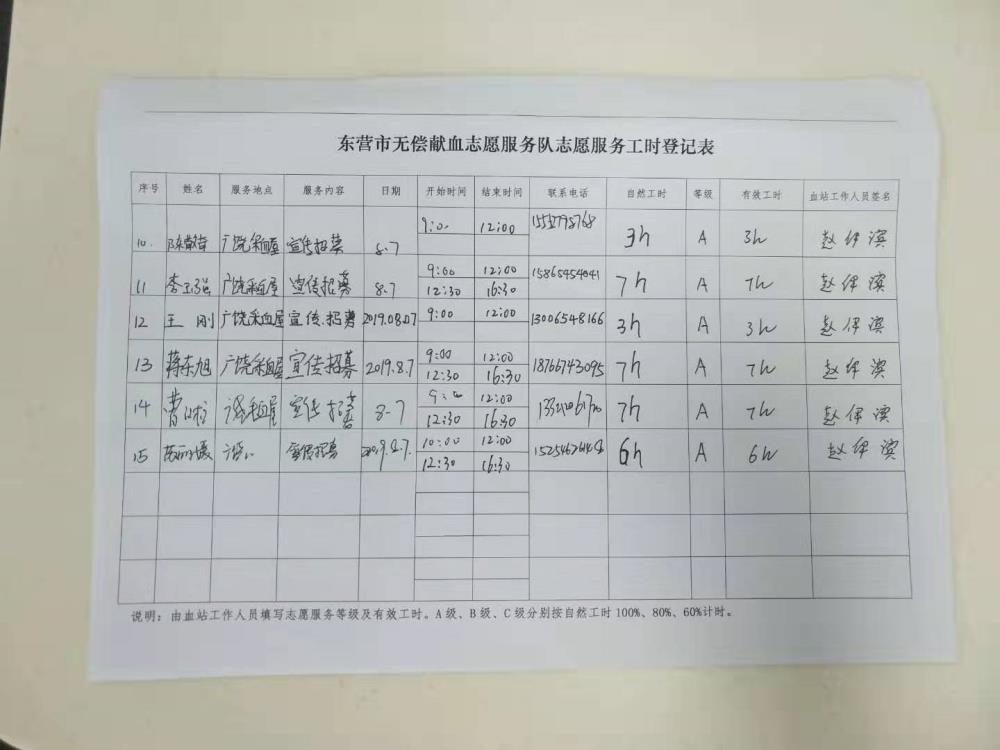 东营市无偿献血志愿服务队志愿服务工时登记表
序号 姓名 服务地点 服务内容 日期 开始时间 结束时间 联系电话 自然工时 等级 有效工时 血站工作人员签名
10. 广饶采血屋 宣传招募 8.7 9:00 12:00 3h A 3h 赵伊滨
11 李卫强 广饶采血屋 宣传招募 8.7 9:00 12:00 15865454041 7h A 7h 赵伊滨
12:30 16:30
12 王刚 广饶采血屋 宣传.招募 2019.08.07 9:00 12:00 13006548166 3h A 3h 赵伊滨
13 蒋东旭 广饶采血屋 宣传招募 2019.8.7 9:00 12:00 18766743095 7h A 7h 赵伊滨
12:30 16:30
14 宣传招募 8.7 9:00 12:00 7h A 7h 赵伊滨
12:30 16:30
15 宣传招募 2019.8.7. 10:00 12:00 6h A 6h 赵伊滨
12:30 16:30
说明：由血站工作人员填写志愿服务等级及有效工时。A级、B级、C级分别按自然工时100%、80%、60%计时。